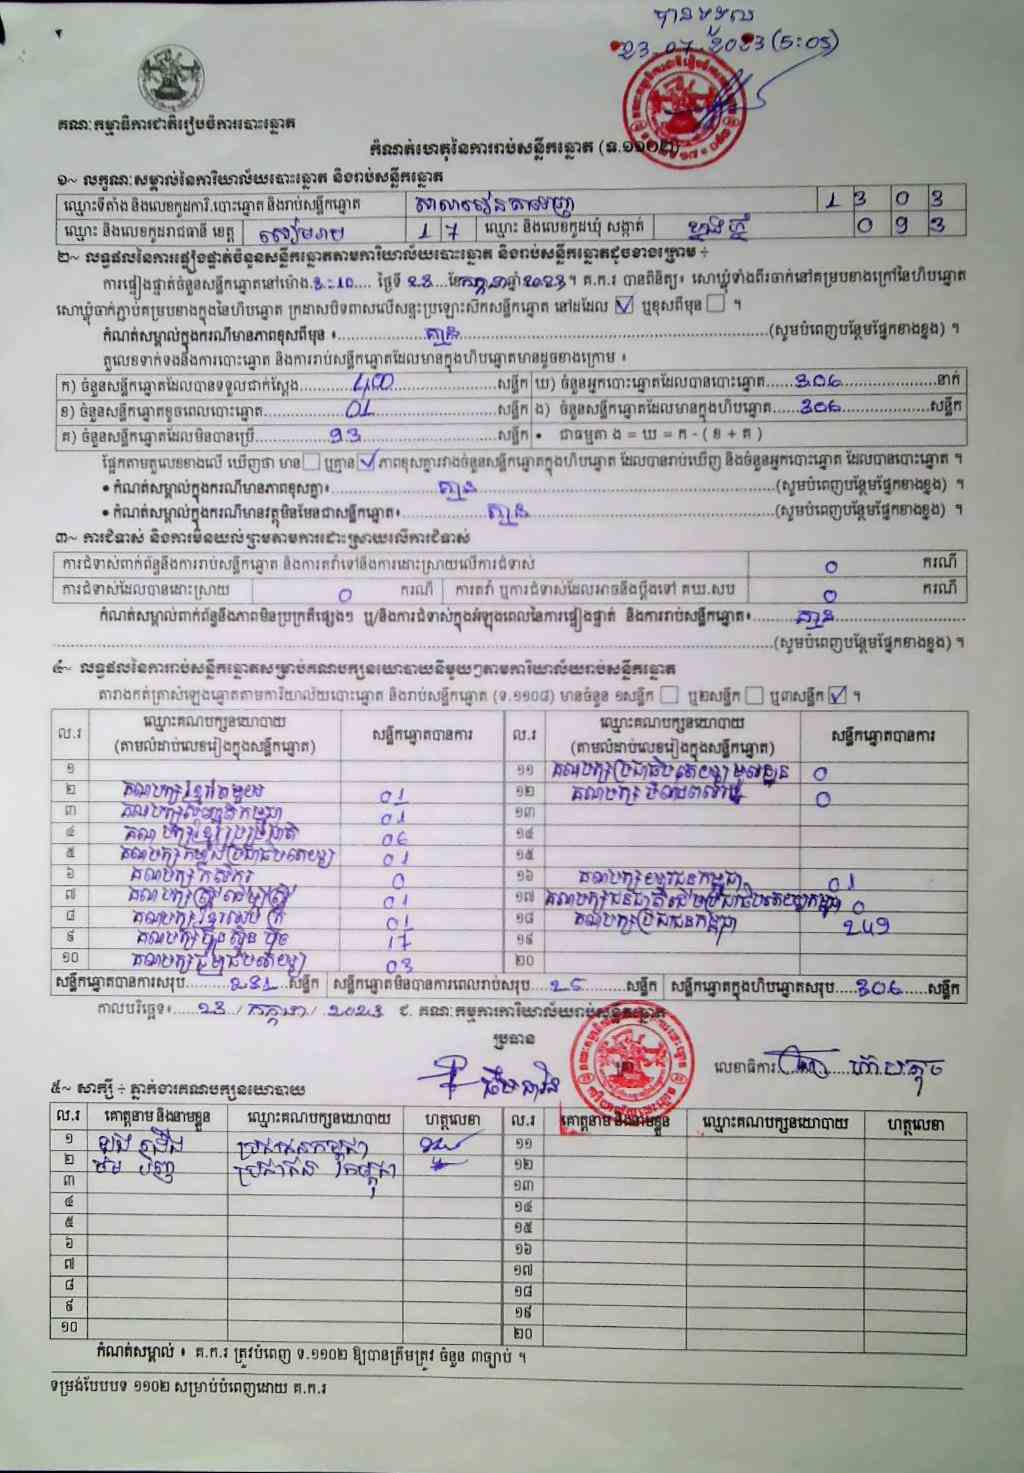 បានទទួល
23.07.2023 (5:05)
គណៈកម្មាធិការជាតិរៀបចំការបោះឆ្នោត
កំណត់ហេតុនៃការរាប់សន្លឹកឆ្នោត (ទ.១១០២)
១~ លក្ខណៈសម្គាល់នៃការិយាល័យបោះឆ្នោត និងរាប់សន្លឹកឆ្នោត
ឈ្មោះទីតាំង និងលេខកូដការិ.បោះឆ្នោត និងរាប់សន្លឹកឆ្នោត សាលារៀន 1 3 0 3
ឈ្មោះ និងលេខកូដរាជធានី ខេត្ត សៀមរាប 1 7 ឈ្មោះ និងលេខកូដឃុំ សង្កាត់ 0 9 3
២~ លទ្ធផលនៃការផ្ទៀងផ្ទាត់ចំនួនសន្លឹកឆ្នោតតាមការិយាល័យបោះឆ្នោត និងរាប់សន្លឹកឆ្នោតដូចខាងក្រោម ÷
ការផ្ទៀងផ្ទាត់ចំនួនសន្លឹកឆ្នោតនៅម៉ោង 3:10 ថ្ងៃទី 23 ខែ កក្កដា ឆ្នាំ 2023 ។ គ.ក.រ បានពិនិត្យ៖ សោឃ្លុំទាំងពីរចាក់នៅគម្របខាងក្រៅនៃហិបឆ្នោត
សោឃ្លុំចាក់ភ្ជាប់គម្របខាងក្នុងនៃហិបឆ្នោត ក្រដាសបិទពាសលើសន្ទះប្រឡោះស៊ីកសន្លឹកឆ្នោត នៅដដែល ☑ ឬខុសពីមុន ☐ ។
កំណត់សម្គាល់ក្នុងករណីមានភាពខុសពីមុន ៖ គ្មាន (សូមបំពេញបន្ថែមផ្នែកខាងខ្នង) ។
តួលេខទាក់ទងនឹងការបោះឆ្នោត និងការរាប់សន្លឹកឆ្នោតដែលមានក្នុងហិបឆ្នោតមានដូចខាងក្រោម ៖
ក) ចំនួនសន្លឹកឆ្នោតដែលបានទទួលជាក់ស្តែង 400 សន្លឹក ឃ) ចំនួនអ្នកបោះឆ្នោតដែលបានបោះឆ្នោត 306 នាក់
ខ) ចំនួនសន្លឹកឆ្នោតខូចពេលបោះឆ្នោត 01 សន្លឹក ង) ចំនួនសន្លឹកឆ្នោតដែលមានក្នុងហិបឆ្នោត 306 សន្លឹក
គ) ចំនួនសន្លឹកឆ្នោតដែលមិនបានប្រើ 93 សន្លឹក • ជាធម្មតា ង = ឃ = ក - ( ខ + គ )
ផ្អែកតាមតួលេខខាងលើ ឃើញថា មាន ☐ ឬគ្មាន ☑ ភាពខុសគ្នារវាងចំនួនសន្លឹកឆ្នោតក្នុងហិបឆ្នោត ដែលបានរាប់ឃើញ និងចំនួនអ្នកបោះឆ្នោត ដែលបានបោះឆ្នោត ។
• កំណត់សម្គាល់ក្នុងករណីមានភាពខុសគ្នា៖ គ្មាន (សូមបំពេញបន្ថែមផ្នែកខាងខ្នង) ។
• កំណត់សម្គាល់ក្នុងករណីមានវត្ថុមិនមែនជាសន្លឹកឆ្នោត៖ គ្មាន (សូមបំពេញបន្ថែមផ្នែកខាងខ្នង) ។
៣~ ការជំទាស់ និងការមិនយល់ព្រមតាមការដោះស្រាយលើការជំទាស់
ការជំទាស់ពាក់ព័ន្ធនឹងការរាប់សន្លឹកឆ្នោត និងការតវ៉ាទៅនឹងការដោះស្រាយលើការជំទាស់ 0 ករណី
ការជំទាស់ដែលបានដោះស្រាយ 0 ករណី ការតវ៉ា ឬការជំទាស់ដែលអាចនឹងប្តឹងទៅ គឃ.សប 0 ករណី
កំណត់សម្គាល់ពាក់ព័ន្ធនឹងភាពមិនប្រក្រតីផ្សេងៗ ឬ/និងការជំទាស់ក្នុងអំឡុងពេលនៃការផ្ទៀងផ្ទាត់ និងការរាប់សន្លឹកឆ្នោត៖ គ្មាន
(សូមបំពេញបន្ថែមផ្នែកខាងខ្នង) ។
៤~ លទ្ធផលនៃការរាប់សន្លឹកឆ្នោតសម្រាប់គណបក្សនយោបាយនីមួយៗតាមការិយាល័យរាប់សន្លឹកឆ្នោត
តារាងកត់ត្រាសំឡេងឆ្នោតតាមការិយាល័យបោះឆ្នោត និងរាប់សន្លឹកឆ្នោត (ទ.១១០៨) មានចំនួន ១សន្លឹក ☐ ឬ២សន្លឹក ☐ ឬ៣សន្លឹក ☑ ។
ល.រ ឈ្មោះគណបក្សនយោបាយ (តាមលំដាប់លេខរៀងក្នុងសន្លឹកឆ្នោត) សន្លឹកឆ្នោតបានការ ល.រ ឈ្មោះគណបក្សនយោបាយ (តាមលំដាប់លេខរៀងក្នុងសន្លឹកឆ្នោត) សន្លឹកឆ្នោតបានការ
១ ១១ គណបក្សប្រជាធិបតេយ្យមូលដ្ឋាន 0
២ គណបក្សខ្មែរតែមួយ 01 ១២ គណបក្ស 0
៣ គណបក្ស កម្ពុជា 01 ១៣
៤ គណបក្សខ្មែរ ជាតិ 06 ១៤
៥ គណបក្សកម្លាំងប្រជាធិបតេយ្យ 01 ១៥
៦ គណបក្សកសិករ 0 ១៦ គណបក្សយុវជនកម្ពុជា 01
៧ គណបក្សស្ត្រីដើម្បីស្ត្រី 01 ១៧ គណបក្សជនជាតិដើមប្រជាធិបតេយ្យកម្ពុជា 0
៨ គណបក្សខ្មែរ 01 ១៨ គណបក្សប្រជាជនកម្ពុជា 249
៩ គណបក្សហ៊្វុនស៊ិនប៉ិច 17 ១៩
១០ គណបក្ស ប្រជាធិបតេយ្យ 03 ២០
សន្លឹកឆ្នោតបានការសរុប 281 សន្លឹក សន្លឹកឆ្នោតមិនបានការពេលរាប់សរុប 25 សន្លឹក សន្លឹកឆ្នោតក្នុងហិបឆ្នោតសរុប 306 សន្លឹក
កាលបរិច្ឆេទ៖ 23 / កក្កដា / 2023 ជ. គណៈកម្មការការិយាល័យរាប់សន្លឹកឆ្នោត
ប្រធាន
លេខាធិការ
៥~ សាក្សី ÷ ភ្នាក់ងារគណបក្សនយោបាយ
ល.រ គោត្តនាម និងនាមខ្លួន ឈ្មោះគណបក្សនយោបាយ ហត្ថលេខា ល.រ គោត្តនាម និងនាមខ្លួន ឈ្មោះគណបក្សនយោបាយ ហត្ថលេខា
១ ប្រជាជនកម្ពុជា ១១
២ ប្រជាជន កម្ពុជា ១២
៣ ១៣
៤ ១៤
៥ ១៥
៦ ១៦
៧ ១៧
៨ ១៨
៩ ១៩
១០ ២០
កំណត់សម្គាល់ ៖ គ.ក.រ ត្រូវបំពេញ ទ.១១០២ ឱ្យបានត្រឹមត្រូវ ចំនួន ៣ច្បាប់ ។
ទម្រង់បែបបទ ១១០២ សម្រាប់បំពេញដោយ គ.ក.រ